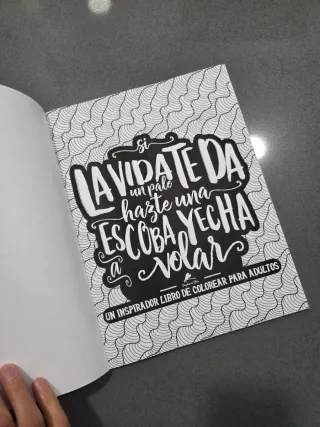 Si
LA VIDA TE DA
un palo
hazte una
ESCOBA Y ECHA
a volar
UN INSPIRADOR LIBRO DE COLOREAR PARA ADULTOS